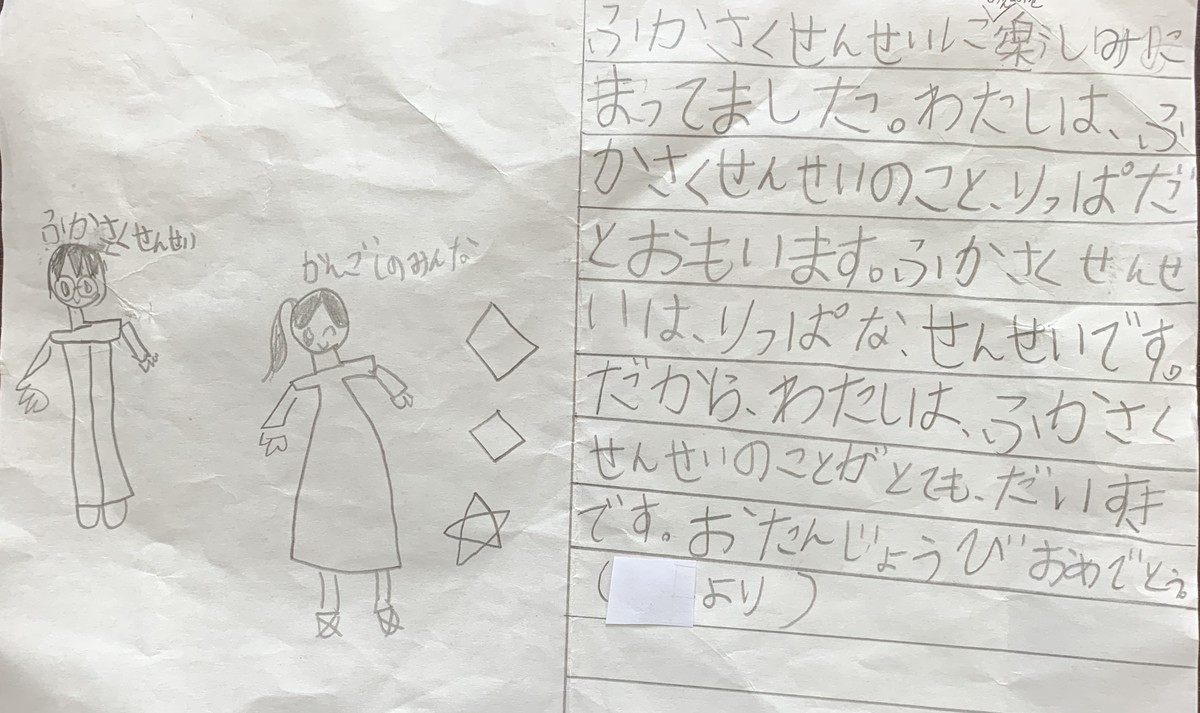 ふかさくせんせい
かんごしのみんな
ふかさくせんせいご楽しみに
まってました。わたしは、ふ
かさくせんせいのこと、りっぱだ
とおもいます。ふかさくせんせ
いは、りっぱな、せんせいです。
だから、わたしは、ふかさく
せんせいのことがとても、だいすき
です。おたんじょうびおめでとう。
(より)